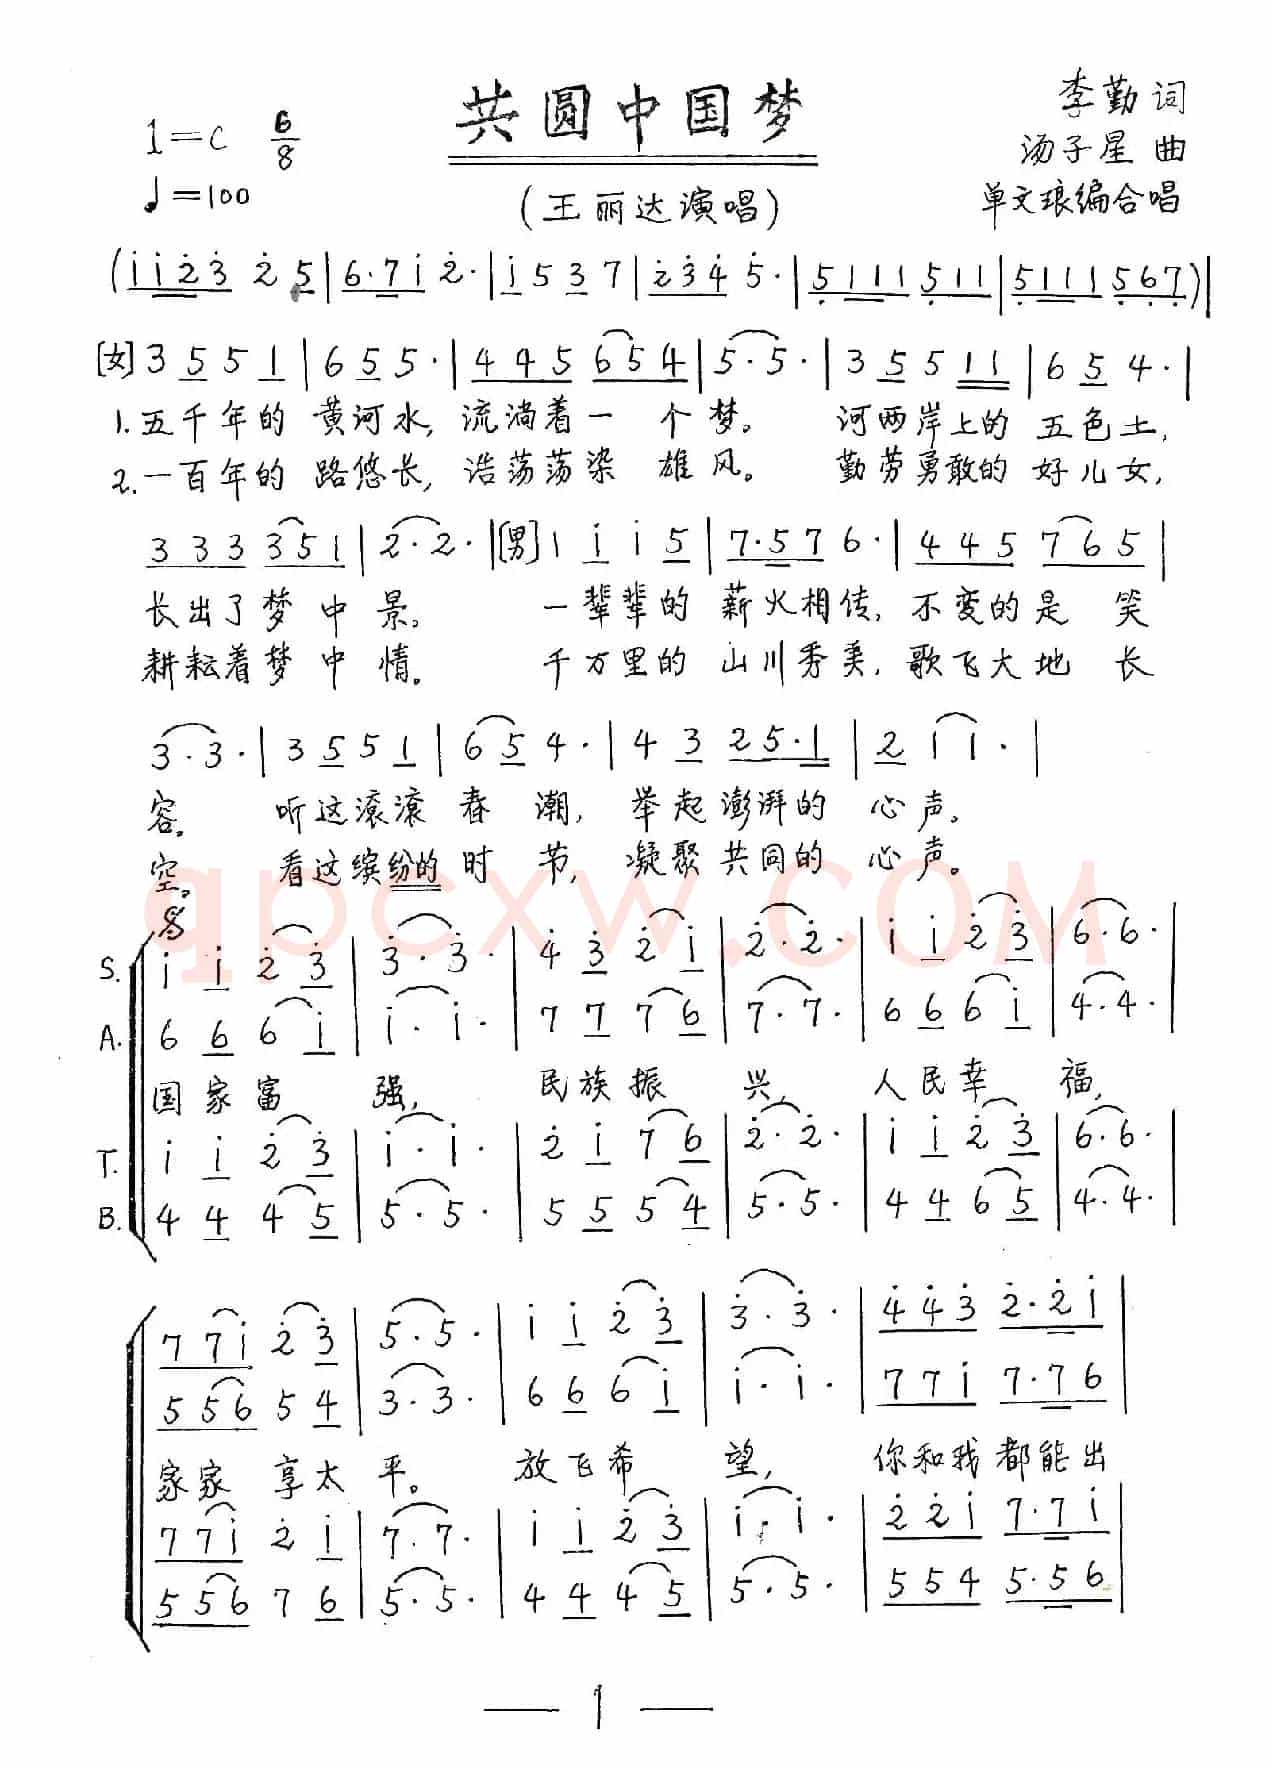 共圆中国梦
李勤词
1=C 6/8
汤子星 曲
♩=100
(王丽达演唱)
单文琅编合唱
(i i 2 3 2 5 | 6·7 i 2· | i 5 3 7 | 2 3 4 5· | 5 1 1 1 5 1 1 | 5 1 1 1 5 6 7) |
[女] 3 5 5 1 | 6 5 5· | 4 4 5 6 5 4 | 5· 5· | 3 5 5 1 1 | 6 5 4· |
1.五千年的 黄河水, 流淌着一 个 梦。 河两岸上的 五色土,
2.一百年的 路悠长, 浩荡荡染 雄 风。 勤劳勇敢的 好儿女,
3 3 3 3 5 1 | 2· 2· | [男] 1 i i 5 | 7·5 7 6· | 4 4 5 7 6 5 |
长出了梦 中 景。 一辈辈的 薪火相传, 不变的是 笑
耕耘着梦 中 情。 千万里的 山川秀美, 歌飞大地 长
3· 3· | 3 5 5 1 | 6 5 4· | 4 3 2 5·1 | 2 1 1· |
容。 听这滚滚 春 潮, 举起澎湃的 心声。
空。 看这缤纷的 时 节, 凝聚共同的 心声。
qpcxw.COM
S. i i 2 3 | 3· 3· | 4 3 2 i | 2· 2· | i i 2 3 | 6· 6· |
A. 6 6 6 i | i· i· | 7 7 7 6 | 7· 7· | 6 6 6 i | 4· 4· |
国家富 强, 民族振 兴, 人民幸 福,
T. i i 2 3 | i· i· | 2 i 7 6 | 2· 2· | i i 2 3 | 6· 6· |
B. 4 4 4 5 | 5· 5· | 5 5 5 4 | 5· 5· | 4 4 6 5 | 4· 4· |
7 7 i 2 3 | 5· 5· | i i 2 3 | 3· 3· | 4 4 3 2·2 i |
5 5 6 5 4 | 3· 3· | 6 6 6 i | i· i· | 7 7 i 7·7 6 |
家家 享太 平。 放飞希 望, 你和我都能出
7 7 i 2 i | 7· 7· | i i 2 3 | i· i· | 2 2 i 7·7 i |
5 5 6 7 6 | 5· 5· | 4 4 4 5 | 5· 5· | 5 5 4 5·5 6 |
— 1 —